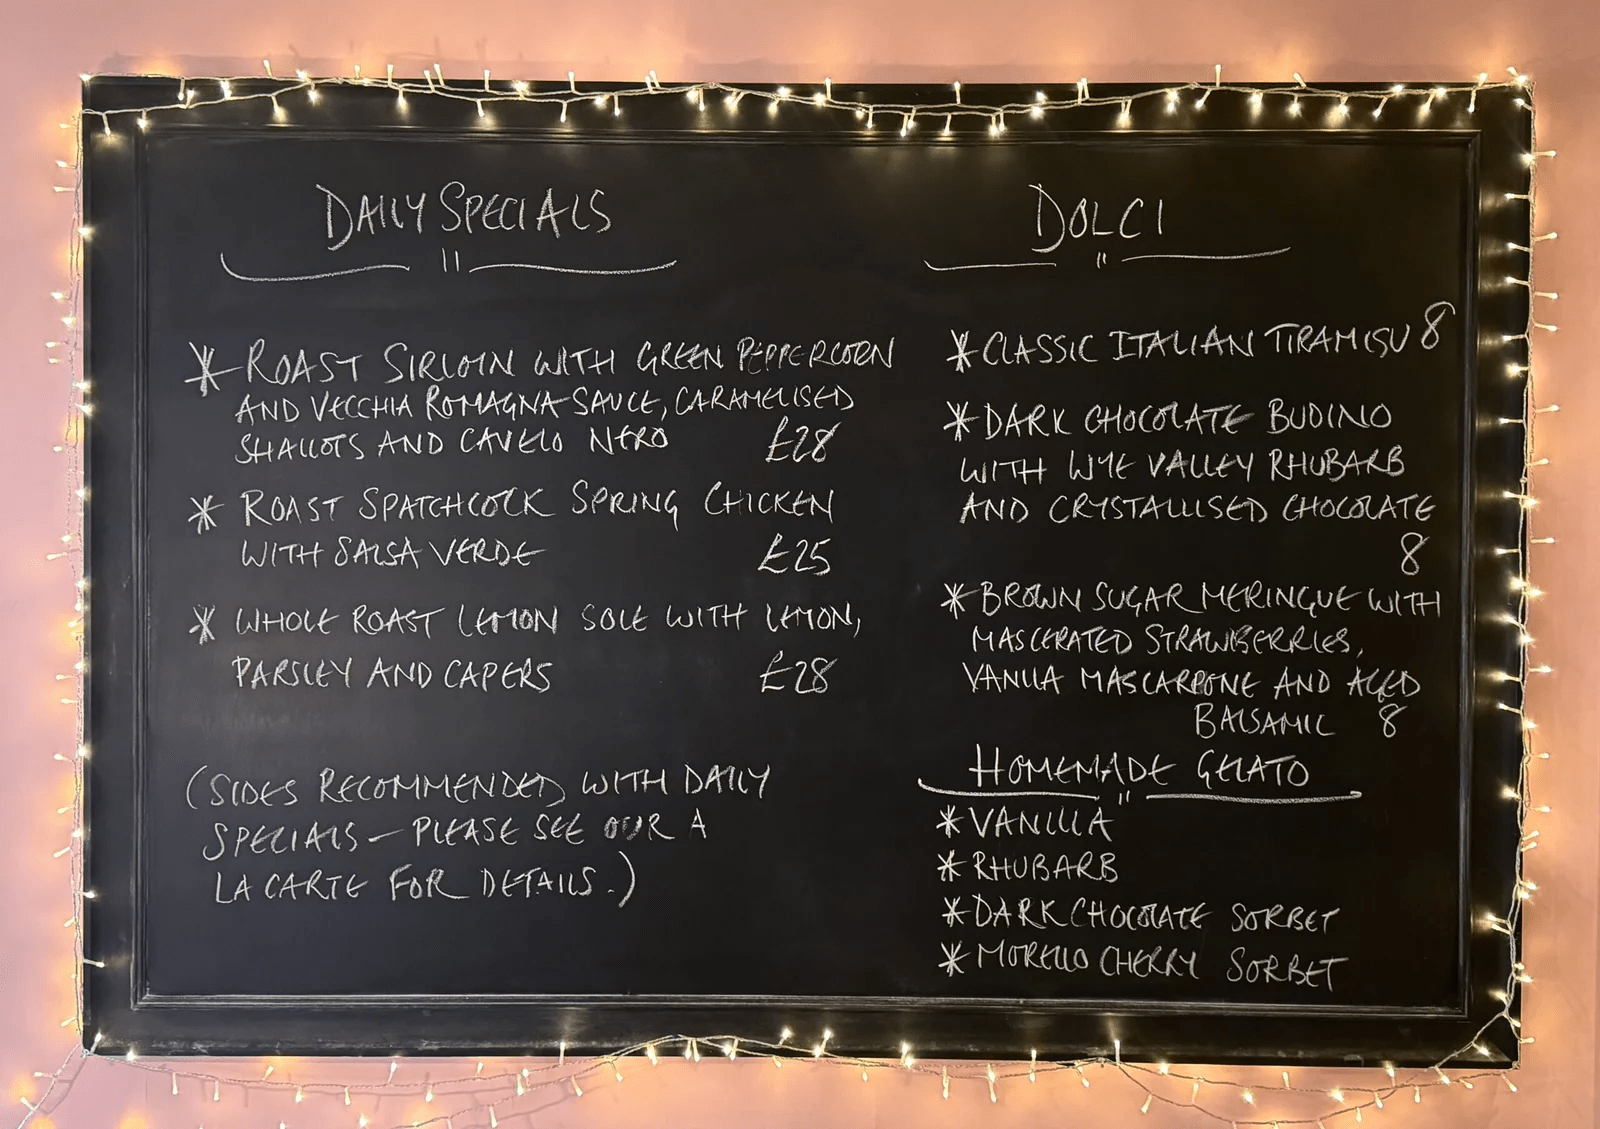 DAILY SPECIALS
* ROAST SIRLOIN WITH GREEN PEPPERCORN
AND VECCHIA ROMAGNA SAUCE, CARAMELISED
SHALLOTS AND CAVELO NERO £28
* ROAST SPATCHCOCK SPRING CHICKEN
WITH SALSA VERDE £25
* WHOLE ROAST LEMON SOLE WITH LEMON,
PARSLEY AND CAPERS £28
(SIDES RECOMMENDED WITH DAILY
SPECIALS - PLEASE SEE OUR A
LA CARTE FOR DETAILS.)
DOLCI
* CLASSIC ITALIAN TIRAMISU 8
* DARK CHOCOLATE BUDINO
WITH WYE VALLEY RHUBARB
AND CRYSTALLISED CHOCOLATE
8
* BROWN SUGAR MERINGUE WITH
MASCERATED STRAWBERRIES,
VANILLA MASCARPONE AND AGED
BALSAMIC 8
HOMEMADE GELATO
* VANILLA
* RHUBARB
* DARK CHOCOLATE SORBET
* MORELLO CHERRY SORBET